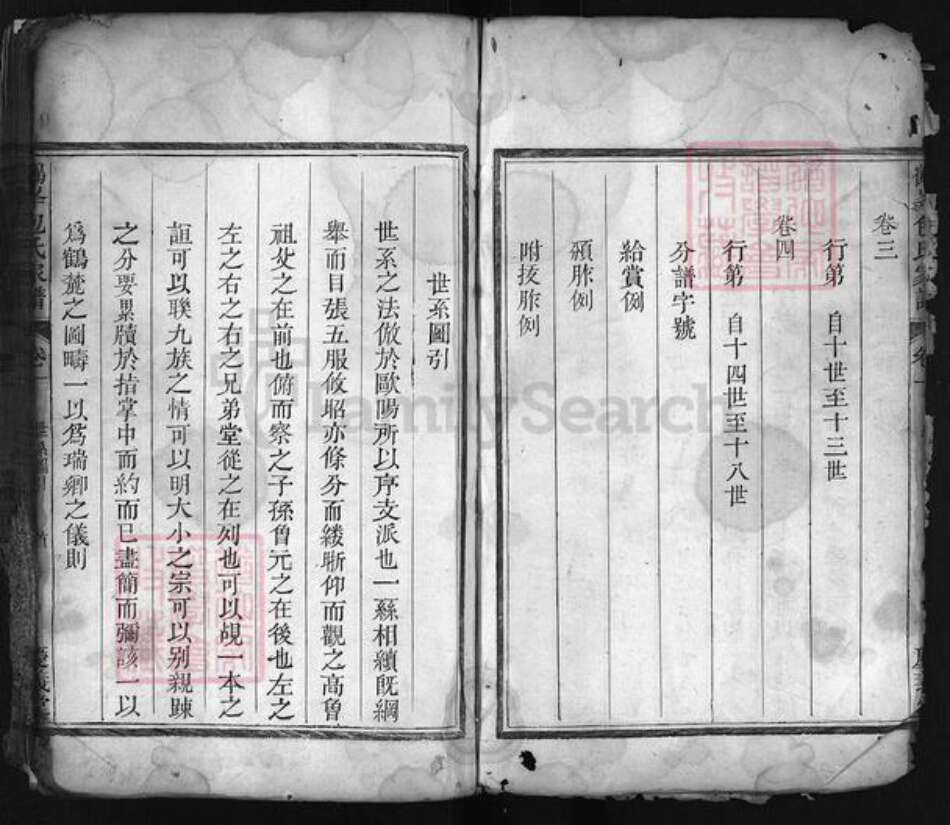 卷三
行第 自十世至十三世
卷四
行第 自十四世至十八世
分譜字號
給賞例
頒胙例
附接胙例
世系圖引
世系之法倣於歐陽所以序支派也一繇相續旣綱
舉而目張五服攸昭亦條分而縷晰仰而觀之高曾
祖父之在前也俯而察之子孫曾元之在後也左之
左之右之右之兄弟堂從之在列也可以覘一本之
誼可以聯九族之情可以明大小之宗可以别親踈
之分要累牘於指掌中而約而已盡簡而彌該一以
爲鶴麓之圖疇一以爲瑞卿之儀則
包氏家譜
卷一
FamilySearch